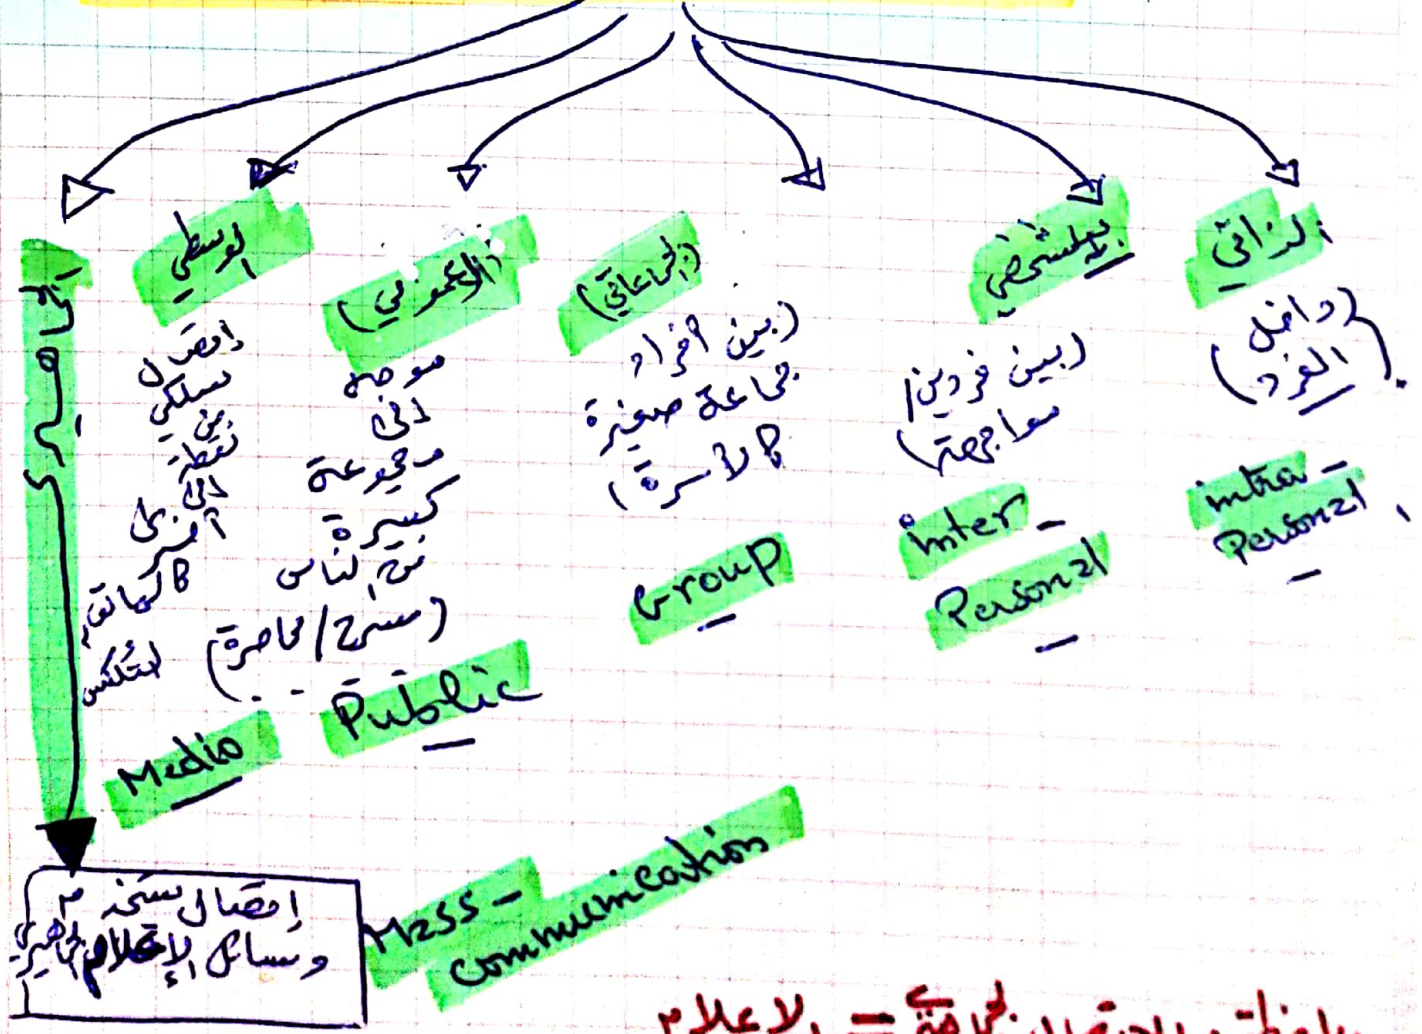 الذاتي
(داخل
الفرد)
intra-
Personal
البيشخصي
(بين فردين/
مواجهة)
inter-
Personal
(الجماعاتي)
(بين أفراد
جماعة صغيرة
كالأسرة)
Group
(العمومي)
موجه
إلى
مجموعة
كبيرة
من الناس
(مسرح/محاضرة
...)
Public
الوسطي
إتصال
سلكي
من
نقطة
إلى
أخرى
كالهاتف
التلكس
Medio
إتصال يستخدم
وسائل الإعلام الجماهيري
Mass-
communication
الإعلام =